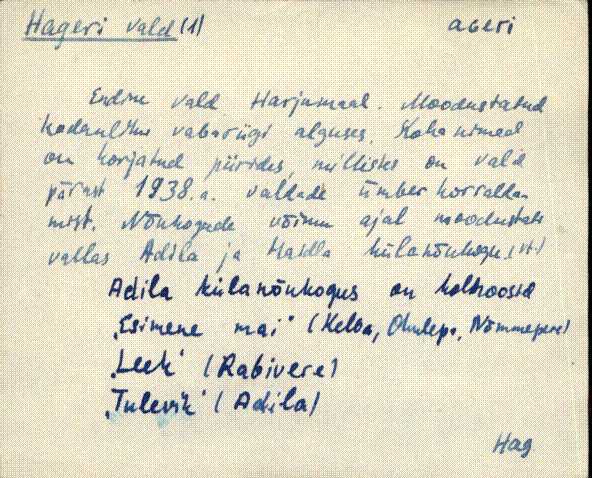 Hageri vald (1) ageri
Endine vald Harjumaal. Moodustatud
kodanliku vabariigi alguses. Kohanimed
on korjatud piirides, millistes on vald
pärast 1938.a. valdade ümberkorralda-
mist. Nõukogude võimu ajal moodustati
vallas Adila ja Haidla külanõukogu.
Adila külanõukogus on kolhoosid
„Esimene mai" (Kelba, Ohulepa, Nõmmepere)
„Leek" (Rabivere)
„Tulevik" (Adila)
Hag